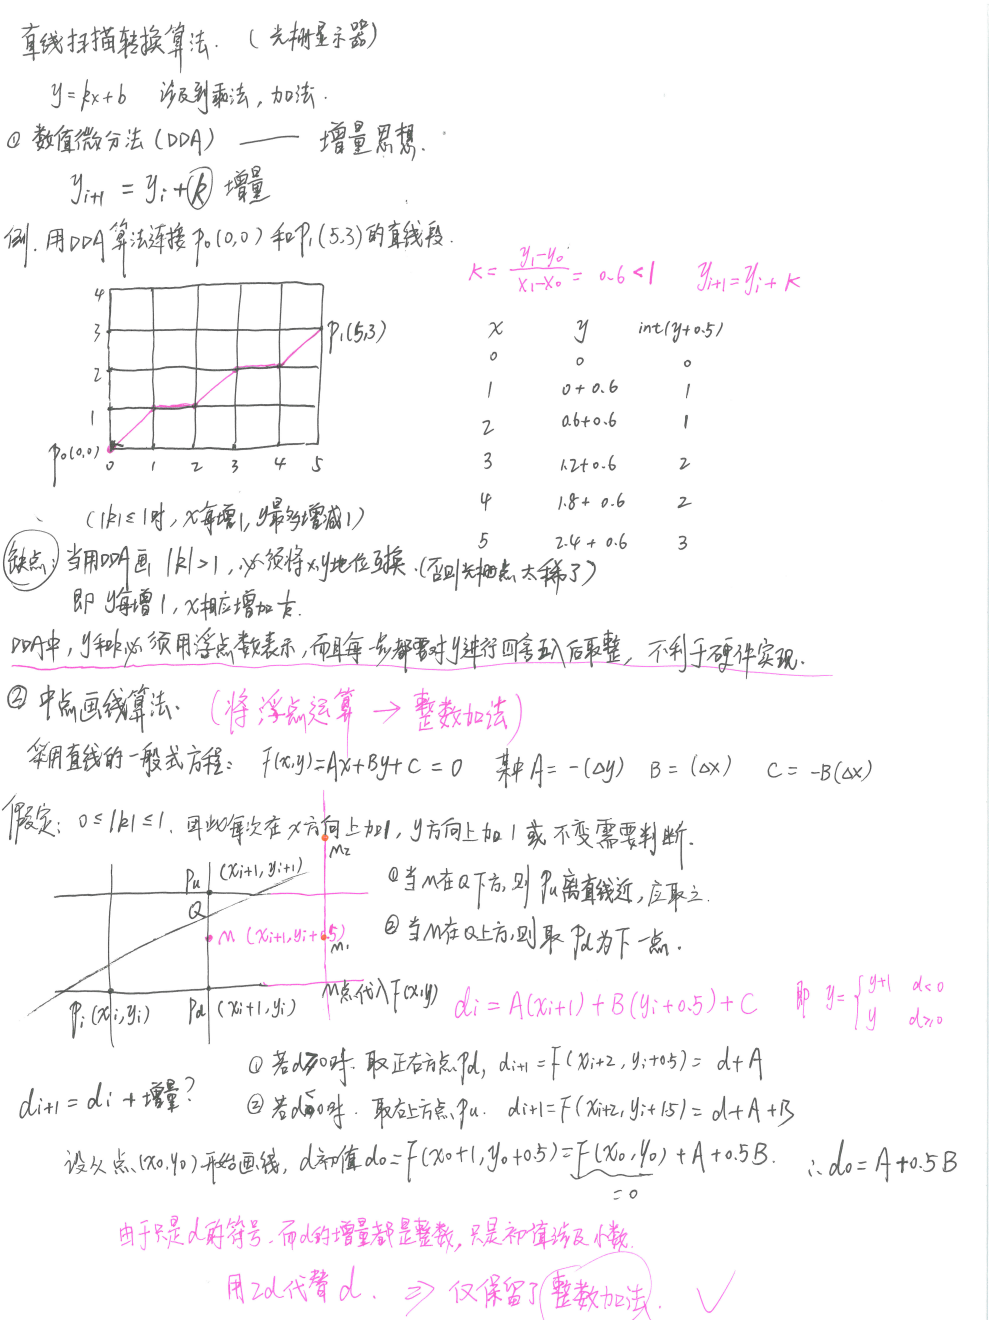 直线扫描转换算法. (光栅显示器)
y=kx+b 涉及到乘法,加法.
① 数值微分法(DDA) —— 增量思想.
yi+1 = yi+k 增量
例. 用DDA算法连接P0(0,0)和P1(5,3)的直线段.
k= y1-y0 / x1-x0 = 0.6<1 yi+1=yi+k
4
3
2
1
P1(5,3)
P0(0,0)
0 1 2 3 4 5
x y int(y+0.5)
0 0 0
1 0+0.6 1
2 0.6+0.6 1
3 1.2+0.6 2
4 1.8+0.6 2
5 2.4+0.6 3
(|k|≤1时, x每增1, y最多增减1)
缺点: 当用DDA画 |k|>1, 必须将x,y地位互换.(否则光栅点太稀了)
即 y每增1, x相应增加 1/k.
DDA中, y和k必须用浮点数表示,而且每一步都要对y进行四舍五入后取整, 不利于硬件实现.
② 中点画线算法. (将浮点运算 → 整数加法)
采用直线的一般式方程: F(x,y)=Ax+By+C=0 其中A=-(Δy) B=(Δx) C=-B(Δx)
假定: 0≤|k|≤1. 因此每次在x方向上加1, y方向上加1或不变需要判断.
M2
Pu (xi+1,yi+1)
Q
M (xi+1,yi+0.5)
M1
Pi(xi,yi)
Pd (xi+1,yi)
①当M在Q下方,则Pu离直线近,应取之.
②当M在Q上方,则取Pd为下一点.
M点代入F(x,y) di=A(xi+1)+B(yi+0.5)+C 即 y={ y+1 d<0
y d≥0
di+1=di+增量?
① 若d≥0时. 取正右方点Pd, di+1=F(xi+2,yi+0.5)=d+A
② 若d<0时. 取右上方点Pu. di+1=F(xi+2,yi+1.5)=d+A+B
设从点(x0,y0)开始画线, d初值d0=F(x0+1,y0+0.5)=F(x0,y0)+A+0.5B. ∴d0=A+0.5B
=0
由于只是d的符号.而d的增量都是整数,只是初值涉及小数.
用2d代替d. ⇒ 仅保留了整数加法. ✓